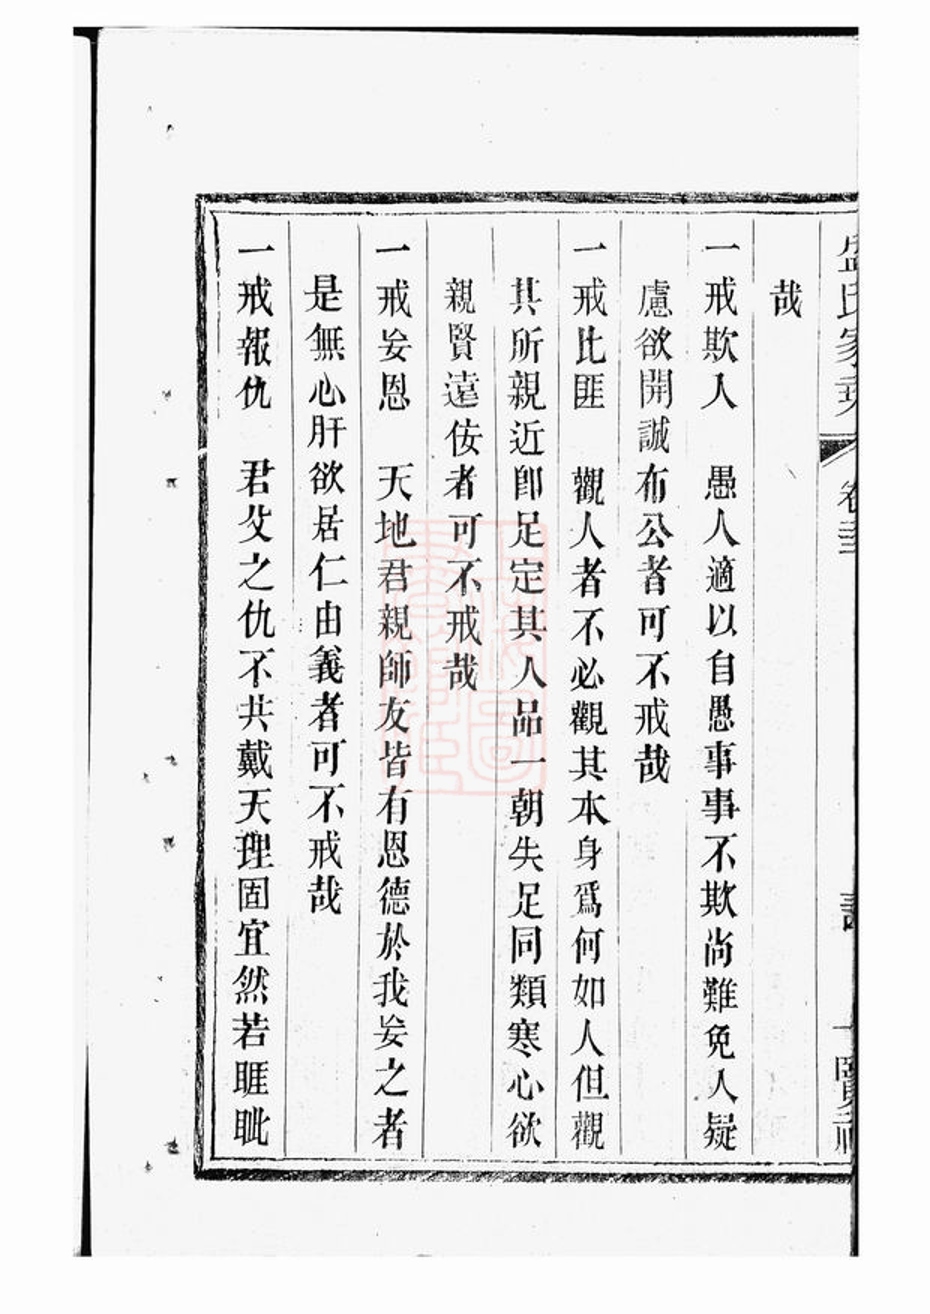 哉
一戒欺人　愚人適以自愚事事不欺尚難免人疑
慮欲開誠布公者可不戒哉
一戒比匪　觀人者不必觀其本身爲何如人但觀
其所親近卽足定其人品一朝失足同類寒心欲
親賢遠佞者可不戒哉
一戒妄恩　天地君親師友皆有恩德於我妄之者
是無心肝欲居仁由義者可不戒哉
一戒報仇　君父之仇不共戴天理固宜然若睚眦